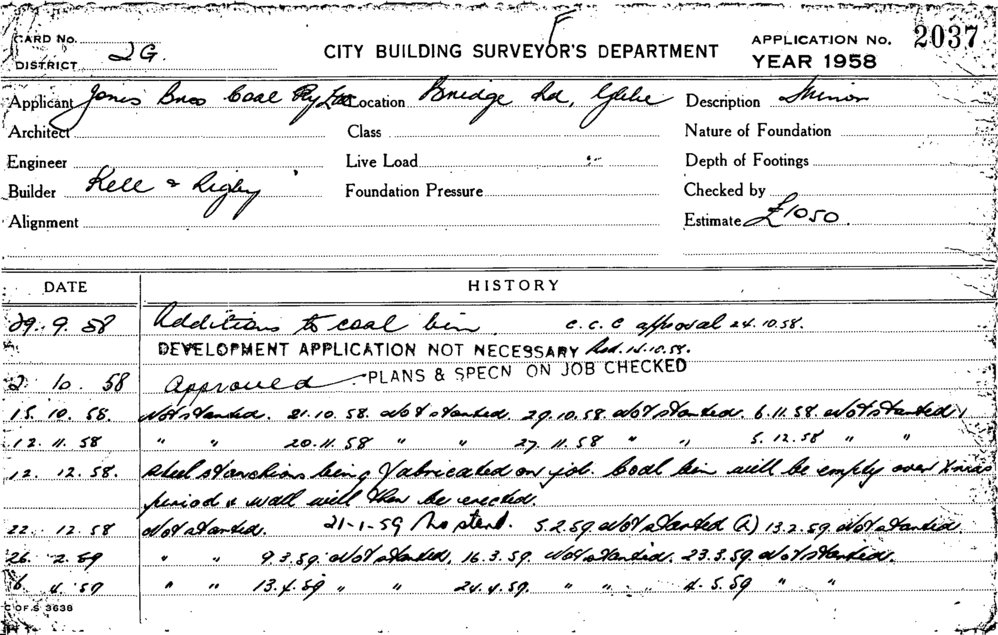 F
CARD No. CITY BUILDING SURVEYOR'S DEPARTMENT APPLICATION No. 2037
DISTRICT 2G. YEAR 1958
Applicant Jones Bros Coal Pty Ltd Location Bridge Rd, Glebe Description Minor
Architect Class Nature of Foundation
Engineer Live Load Depth of Footings
Builder Kell & Rigby Foundation Pressure Checked by
Alignment Estimate £1050.
DATE HISTORY
29. 9. 58 Additions to coal bin. C.C.C approval 24.10.58.
DEVELOPMENT APPLICATION NOT NECESSARY Red. 14.10.58.
2 10. 58 Approved PLANS & SPECN ON JOB CHECKED
15. 10. 58. Not started. 21.10.58. Not started. 29.10.58. Not started. 6.11.58. Not started.
12. 11. 58 " " 20.11.58 " " 27.11.58 " " 5.12.58 " "
12. 12. 58. Steel stanchions being fabricated on job. Coal bin will be empty over Xmas
period & wall will then be erected.
22. 12. 58 Not started. 21-1-59 No start. 5.2.59 Not started (R) 13.2.59. Not started
26. 2. 59 " " 9.3.59. Not started, 16.3.59. Not started. 23.3.59. Not started.
6. 4. 59 " " 13.4.59 " " 24.4.59. " " 4.5.59 " "
C OF S 3636